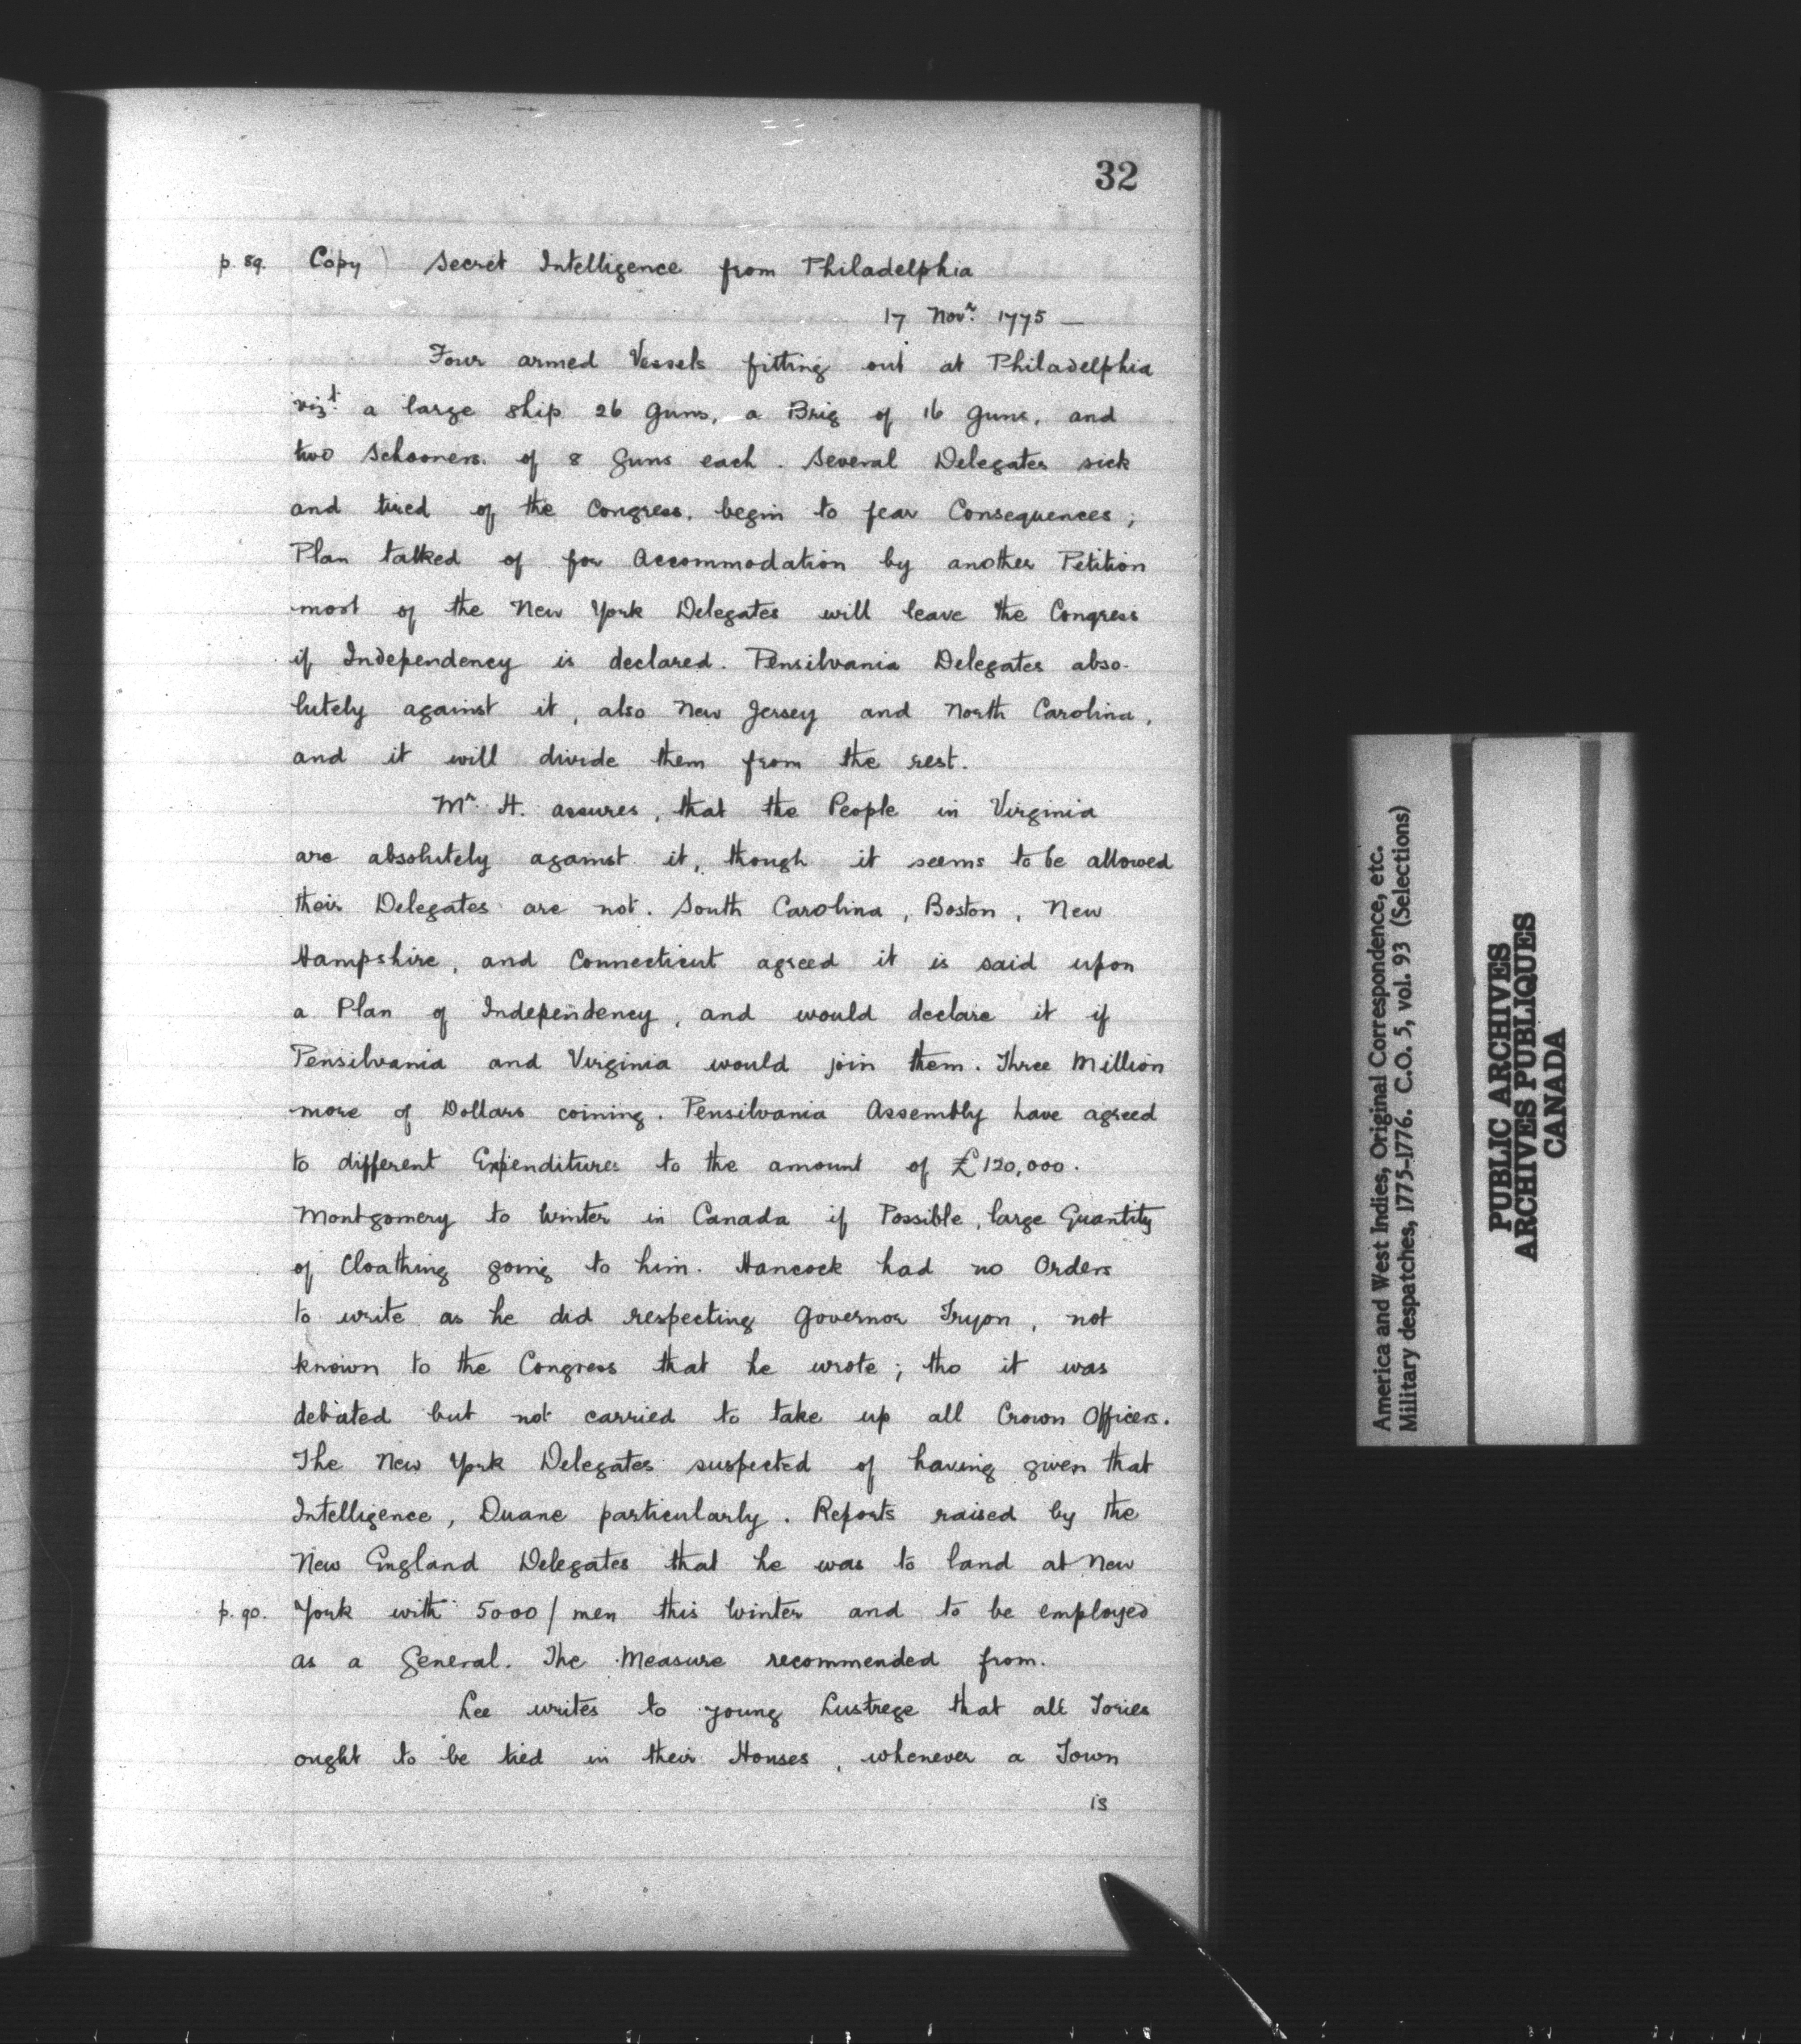 32
p. 89. Copy) Secret Intelligence from Philadelphia
17 Novr. 1775 —
Four armed Vessels fitting out at Philadelphia
vizt. a large ship 26 Guns, a Brig of 16 Guns, and
two Schooners of 8 Guns each. Several Delegates sick
and tired of the Congress, begin to fear Consequences;
Plan talked of for Accommodation by another Petition
most of the New York Delegates will leave the Congress
if Independency is declared. Pensilvania Delegates abso-
lutely against it, also New Jersey and North Carolina,
and it will divide them from the rest.
Mr. H. assures, that the People in Virginia
are absolutely against it, though it seems to be allowed
their Delegates are not. South Carolina, Boston, New
Hampshire, and Connecticut agreed it is said upon
a Plan of Independency, and would declare it if
Pensilvania and Virginia would join them. Three Million
more of Dollars coining. Pensilvania Assembly have agreed
to different Expenditures to the amount of £120,000.
Montgomery to Winter in Canada if Possible, large Quantity
of Cloathing going to him. Hancock had no Orders
to write as he did respecting Governor Tryon, not
known to the Congress that he wrote; tho it was
debated but not carried to take up all Crown Officers.
The New York Delegates suspected of having given that
Intelligence, Duane particularly. Reports raised by the
New England Delegates that he was to land at New
p. 90. York with 5000/ men this Winter and to be employed
as a General. The Measure recommended from.
Lee writes to young Lustrege that all Tories
ought to be tied in their Houses, whenever a Town
is
America and West Indies, Original Correspondence, etc.
Military despatches, 1775-1776. C.O. 5, vol. 93 (Selections)
PUBLIC ARCHIVES
ARCHIVES PUBLIQUES
CANADA